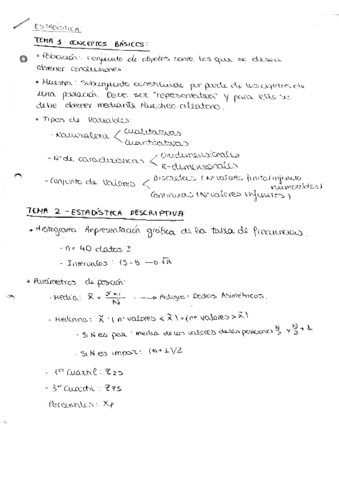 ESTADÍSTICA
TEMA 1 CONCEPTOS BÁSICOS:
• Población: conjunto de objetos sobre los que se desea
obtener conclusiones
• Muestra: Subconjunto constituido por parte de los objetos de
una población. Debe ser "representativa" y para ello se
debe obtener mediante Muestreo aleatorio.
• Tipos de Variables:
- Naturaleza < Cualitativas
Cuantitativas
- Nº de características < Unidimensionales
K-dimensionales
- Conjunto de Valores < Discretas (Nº valores finito/infinito
numerables)
Continuas (Nº valores infinitos)
TEMA 2 - ESTADÍSTICA DESCRIPTIVA
• Histograma: Representación gráfica de la tabla de frecuencias
- n = 40 datos
- Intervalos: 15-6 → √n
• Parámetros de posición:
- Media: x̄ = Σxi / N
Datos Asimétricos.
- Mediana: x̃ (nº valores < x̃) = (nº valores > x̃)
- Si N es par: media de los valores de las posiciones N/2 y N/2 + 1
- Si N es impar: (N+1)/2
- 1er Cuartil: Z25
- 3er Cuartil: Z75
Percentiles: Xp